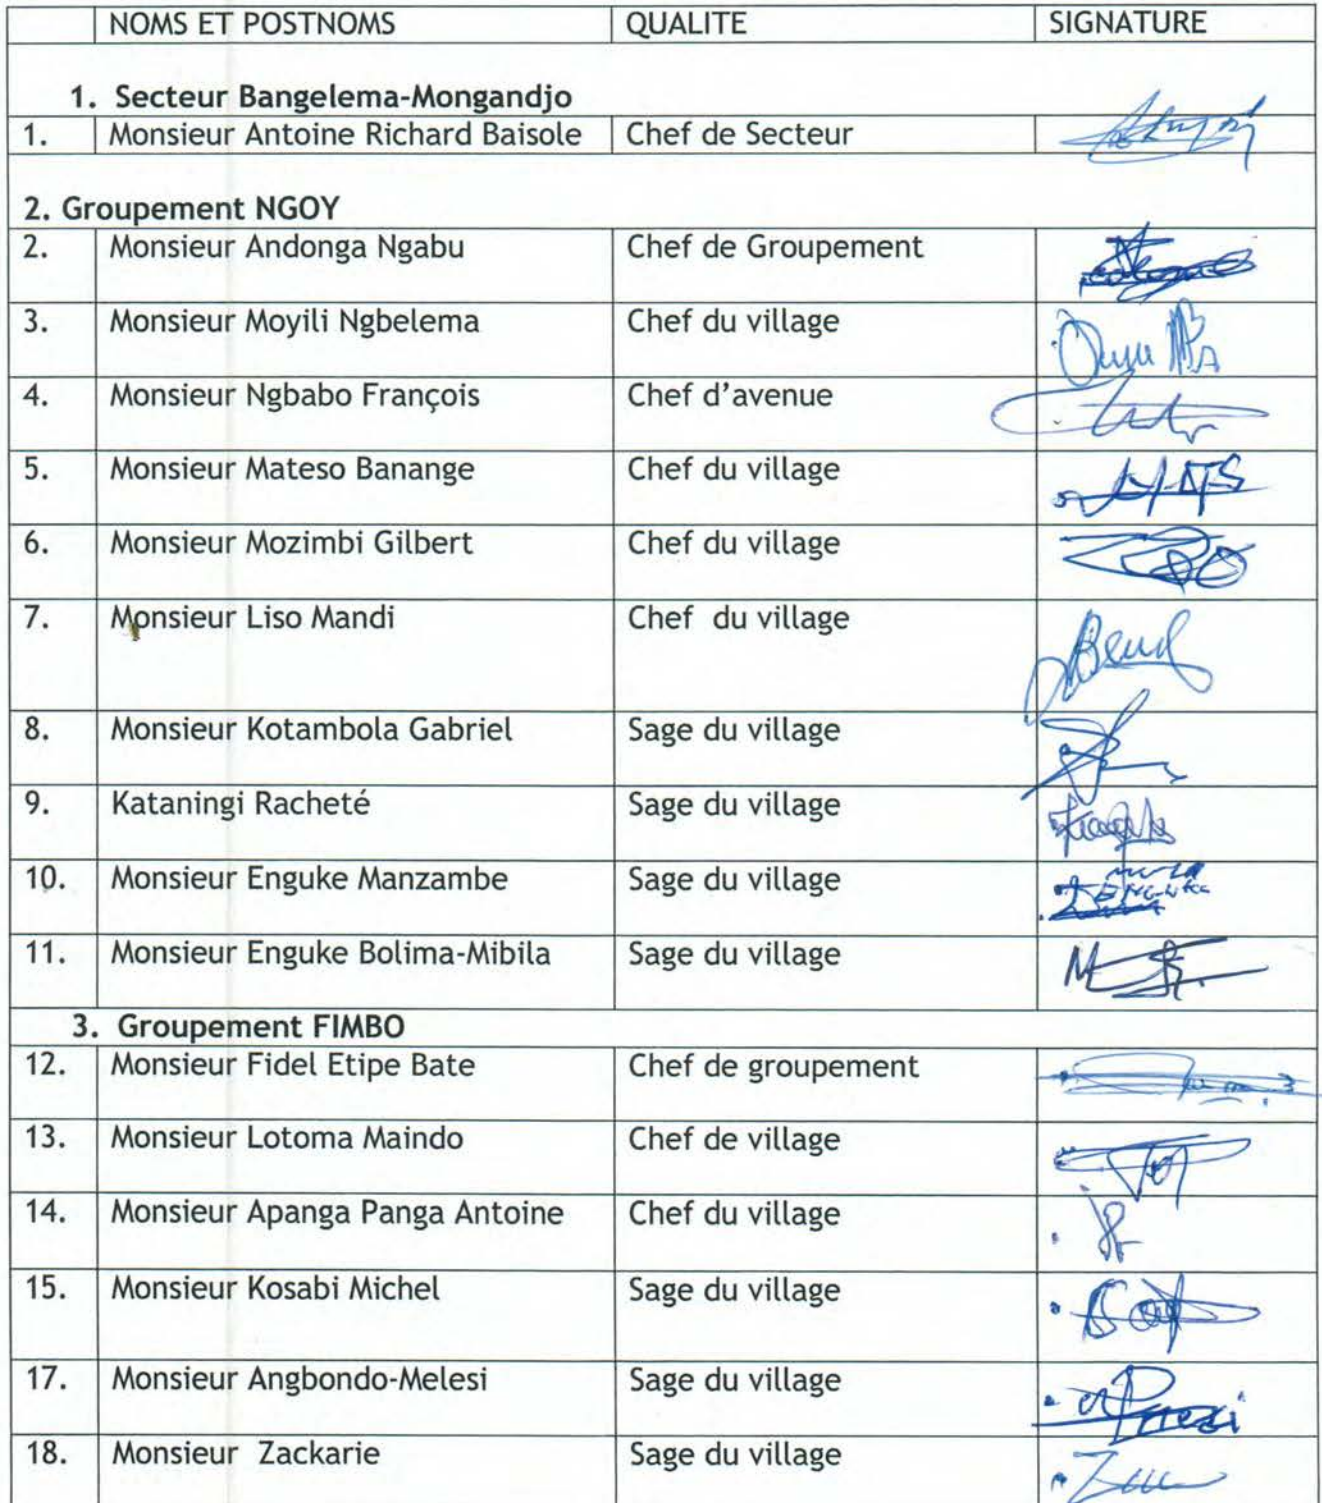 NOMS ET POSTNOMS QUALITE SIGNATURE
1. Secteur Bangelema-Mongandjo
1. Monsieur Antoine Richard Baisole Chef de Secteur
2. Groupement NGOY
2. Monsieur Andonga Ngabu Chef de Groupement
3. Monsieur Moyili Ngbelema Chef du village
4. Monsieur Ngbabo François Chef d'avenue
5. Monsieur Mateso Banange Chef du village
6. Monsieur Mozimbi Gilbert Chef du village
7. Monsieur Liso Mandi Chef du village
8. Monsieur Kotambola Gabriel Sage du village
9. Kataningi Racheté Sage du village
10. Monsieur Enguke Manzambe Sage du village
11. Monsieur Enguke Bolima-Mibila Sage du village
3. Groupement FIMBO
12. Monsieur Fidel Etipe Bate Chef de groupement
13. Monsieur Lotoma Maindo Chef de village
14. Monsieur Apanga Panga Antoine Chef du village
15. Monsieur Kosabi Michel Sage du village
17. Monsieur Angbondo-Melesi Sage du village
18. Monsieur Zackarie Sage du village